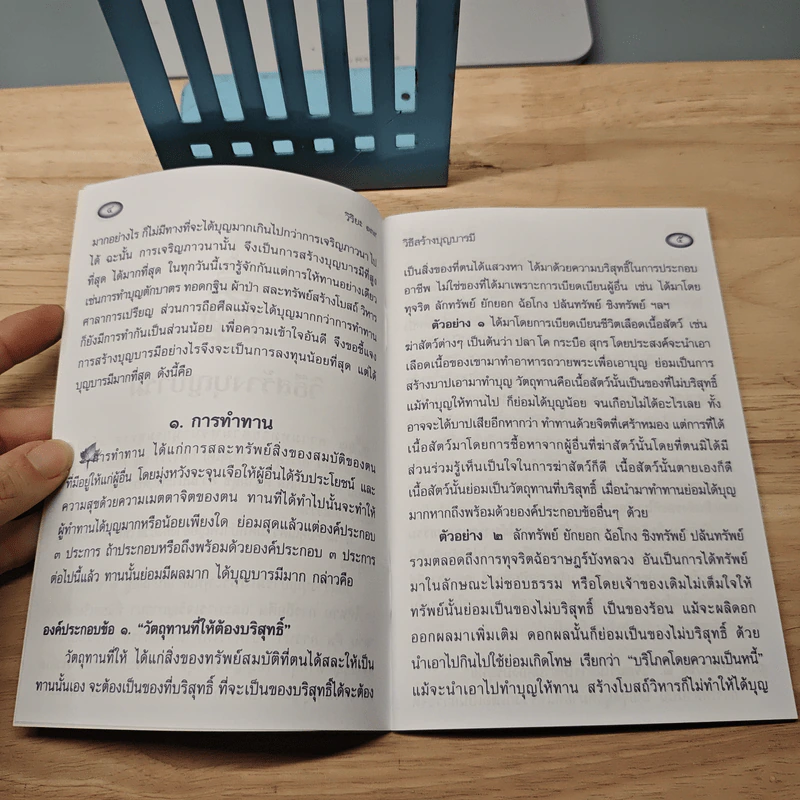 ๔
วิริยะ
มากอย่างไร ก็ไม่มีทางที่จะได้บุญมากเกินไปกว่าการเจริญภาวนาไป
ได้ ฉะนั้น การเจริญภาวนานั้น จึงเป็นการสร้างบุญบารมีที่สูง
ที่สุด ได้มากที่สุด ในทุกวันนี้เรารู้จักกันแต่การให้ทานอย่างเดียว
เช่นการทำบุญตักบาตร ทอดกฐิน ผ้าป่า สละทรัพย์สร้างโบสถ์ วิหาร
ศาลาการเปรียญ ส่วนการถือศีลแม้จะได้บุญมากกว่าการทำทาน
ก็ยังมีการทำกันเป็นส่วนน้อย เพื่อความเข้าใจอันดี จึงขอชี้แจง
การสร้างบุญบารมีอย่างไรจึงจะเป็นการลงทุนน้อยที่สุด แต่ได้
บุญบารมีมากที่สุด ดังนี้คือ
๑. การทำทาน
การทำทาน ได้แก่การสละทรัพย์สิ่งของสมบัติของตน
ที่มีอยู่ให้แก่ผู้อื่น โดยมุ่งหวังจะจุนเจือให้ผู้อื่นได้รับประโยชน์ และ
ความสุขด้วยความเมตตาจิตของตน ทานที่ได้ทำไปนั้นจะทำให้
ผู้ทำทานได้บุญมากหรือน้อยเพียงใด ย่อมสุดแล้วแต่องค์ประกอบ
๓ ประการ ถ้าประกอบหรือถึงพร้อมด้วยองค์ประกอบ ๓ ประการ
ต่อไปนี้แล้ว ทานนั้นย่อมมีผลมาก ได้บุญบารมีมาก กล่าวคือ
องค์ประกอบข้อ ๑. “วัตถุทานที่ให้ต้องบริสุทธิ์”
วัตถุทานที่ให้ ได้แก่สิ่งของทรัพย์สมบัติที่ตนได้สละให้เป็น
ทานนั้นเอง จะต้องเป็นของที่บริสุทธิ์ ที่จะเป็นของบริสุทธิ์ได้จะต้อง
วิธีสร้างบุญบารมี
๕
เป็นสิ่งของที่ตนได้แสวงหา ได้มาด้วยความบริสุทธิ์ในการประกอบ
อาชีพ ไม่ใช่ของที่ได้มาเพราะการเบียดเบียนผู้อื่น เช่น ได้มาโดย
ทุจริต ลักทรัพย์ ยักยอก ฉ้อโกง ปล้นทรัพย์ ชิงทรัพย์ ฯลฯ
ตัวอย่าง ๑ ได้มาโดยการเบียดเบียนชีวิตเลือดเนื้อสัตว์ เช่น
ฆ่าสัตว์ต่างๆ เป็นต้นว่า ปลา โค กระบือ สุกร โดยประสงค์จะนำเอา
เลือดเนื้อของเขามาทำอาหารถวายพระเพื่อเอาบุญ ย่อมเป็นการ
สร้างบาปเอามาทำบุญ วัตถุทานคือเนื้อสัตว์นั้นเป็นของที่ไม่บริสุทธิ์
แม้ทำบุญให้ทานไป ก็ย่อมได้บุญน้อย จนเกือบไม่ได้อะไรเลย ทั้ง
อาจจะได้บาปเสียอีกหากว่า ทำทานด้วยจิตที่เศร้าหมอง แต่การที่ได้
เนื้อสัตว์มาโดยการซื้อหาจากผู้อื่นที่ฆ่าสัตว์นั้นโดยที่ตนมิได้มี
ส่วนร่วมรู้เห็นเป็นใจในการฆ่าสัตว์ก็ดี เนื้อสัตว์นั้นตายเองก็ดี
เนื้อสัตว์นั้นย่อมเป็นวัตถุทานที่บริสุทธิ์ เมื่อนำมาทำทานย่อมได้บุญ
มากหากถึงพร้อมด้วยองค์ประกอบข้ออื่นๆ ด้วย
ตัวอย่าง ๒ ลักทรัพย์ ยักยอก ฉ้อโกง ชิงทรัพย์ ปล้นทรัพย์
รวมตลอดถึงการทุจริตฉ้อราษฎร์บังหลวง อันเป็นการได้ทรัพย์
มาในลักษณะไม่ชอบธรรม หรือโดยเจ้าของเดิมไม่เต็มใจให้
ทรัพย์นั้นย่อมเป็นของไม่บริสุทธิ์ เป็นของร้อน แม้จะผลิดอก
ออกผลมาเพิ่มเติม ดอกผลนั้นก็ย่อมเป็นของไม่บริสุทธิ์ ด้วย
นำเอาไปกินไปใช้ย่อมเกิดโทษ เรียกว่า “บริโภคโดยความเป็นหนี้”
แม้จะนำเอาไปทำบุญให้ทาน สร้างโบสถ์วิหารก็ไม่ทำให้ได้บุญ